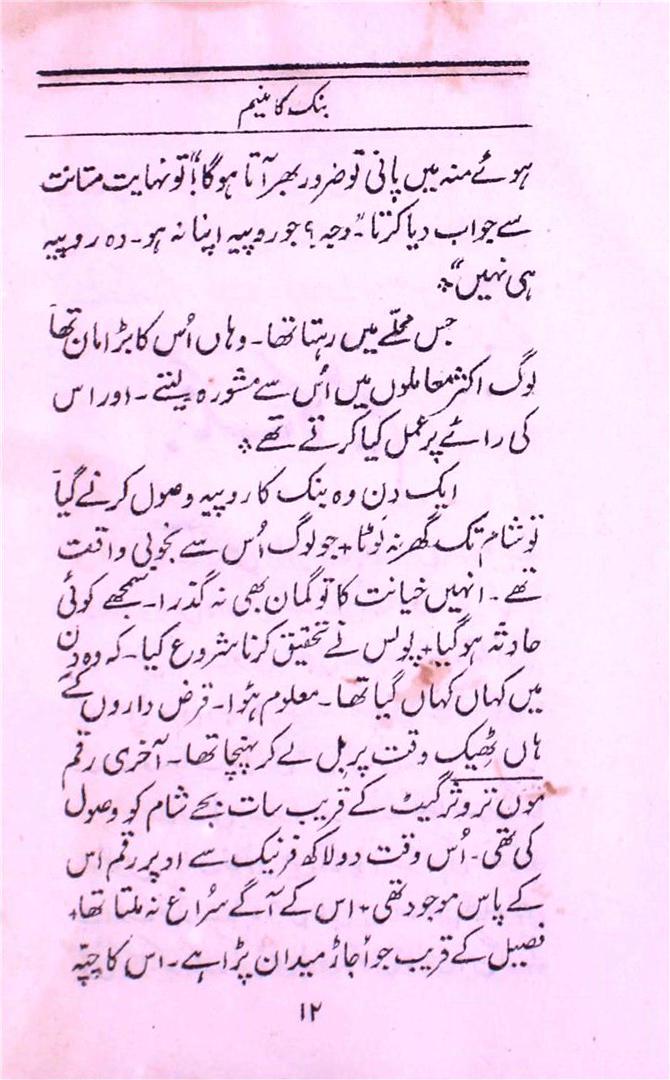 بنک کا منیم
ہوئے منہ میں پانی تو ضرور بھر آتا ہوگا!" تو نہایت متانت
سے جواب دیا کرتا۔ "وجہ؟ جو روپیہ اپنا نہ ہو۔ وہ روپیہ
ہی نہیں"٭
جس محلّے میں رہتا تھا۔ وہاں اُس کا بڑا مان تھا
لوگ اکثر معاملوں میں اُس سے مشورہ لیتے۔ اور اس
کی رائے پر عمل کیا کرتے تھے٭
ایک دن وہ بنک کا روپیہ وصول کرنے گیا
تو شام تک گھر نہ لوٹا + جو لوگ اُس سے بخوبی واقف
تھے۔ انہیں خیانت کا تو گمان بھی نہ گذرا۔ سمجھے کوئی
حادثہ ہو گیا + پولس نے تحقیق کرنا شروع کیا۔ کہ وہ دن
میں کہاں کہاں گیا تھا۔ معلوم ہؤا۔ قرض داروں کے
ہاں ٹھیک وقت پر بل لے کر پہنچا تھا۔ آخری رقم
مون تروثر گیٹ کے قریب سات بجے شام کو وصول
کی تھی۔ اُس وقت دو لاکھ فرنیک سے اوپر رقم اس
کے پاس موجود تھی + اس کے آگے سُراغ نہ ملتا تھا +
فصیل کے قریب جو اُجاڑ میدان پڑا ہے۔ اس کا چپّہ
۱۲